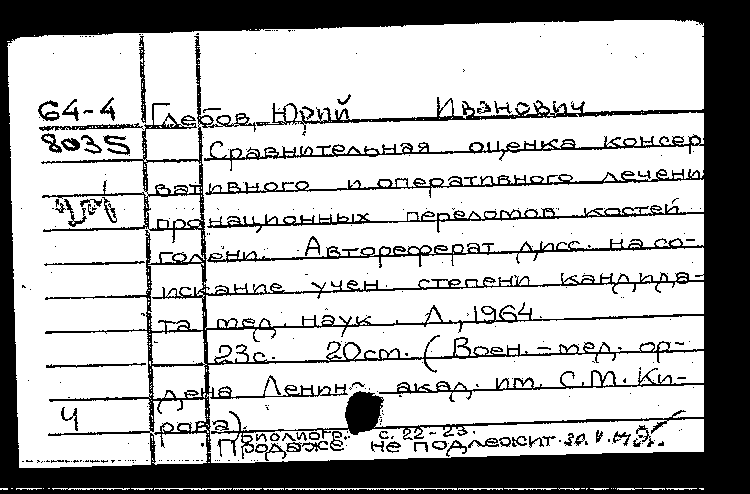 64-4 Глебов, Юрий Иванович
8035 Сравнительная оценка консер
вативного и оперативного лечени
пронационных переломов костей
голени. Автореферат дисс. на со-
искание учен. степени кандида-
та мед. наук. Л., 1964.
23с. 20см. (Воен.-мед. ор-
дена Ленина акад. им. С.М. Ки-
4 рова).
с. 22-23.
Продаже не подлежит.